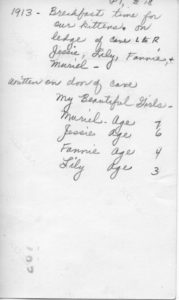 1913 - Breakfast time for
our kittens on
ledge of cave L to R
Jessie, Lily, Fannie, +
Muriel -
written on door of cave
My Beautiful Girls -
Muriel - Age 7
Jessie Age 6
Fannie Age 4
Lily Age 3